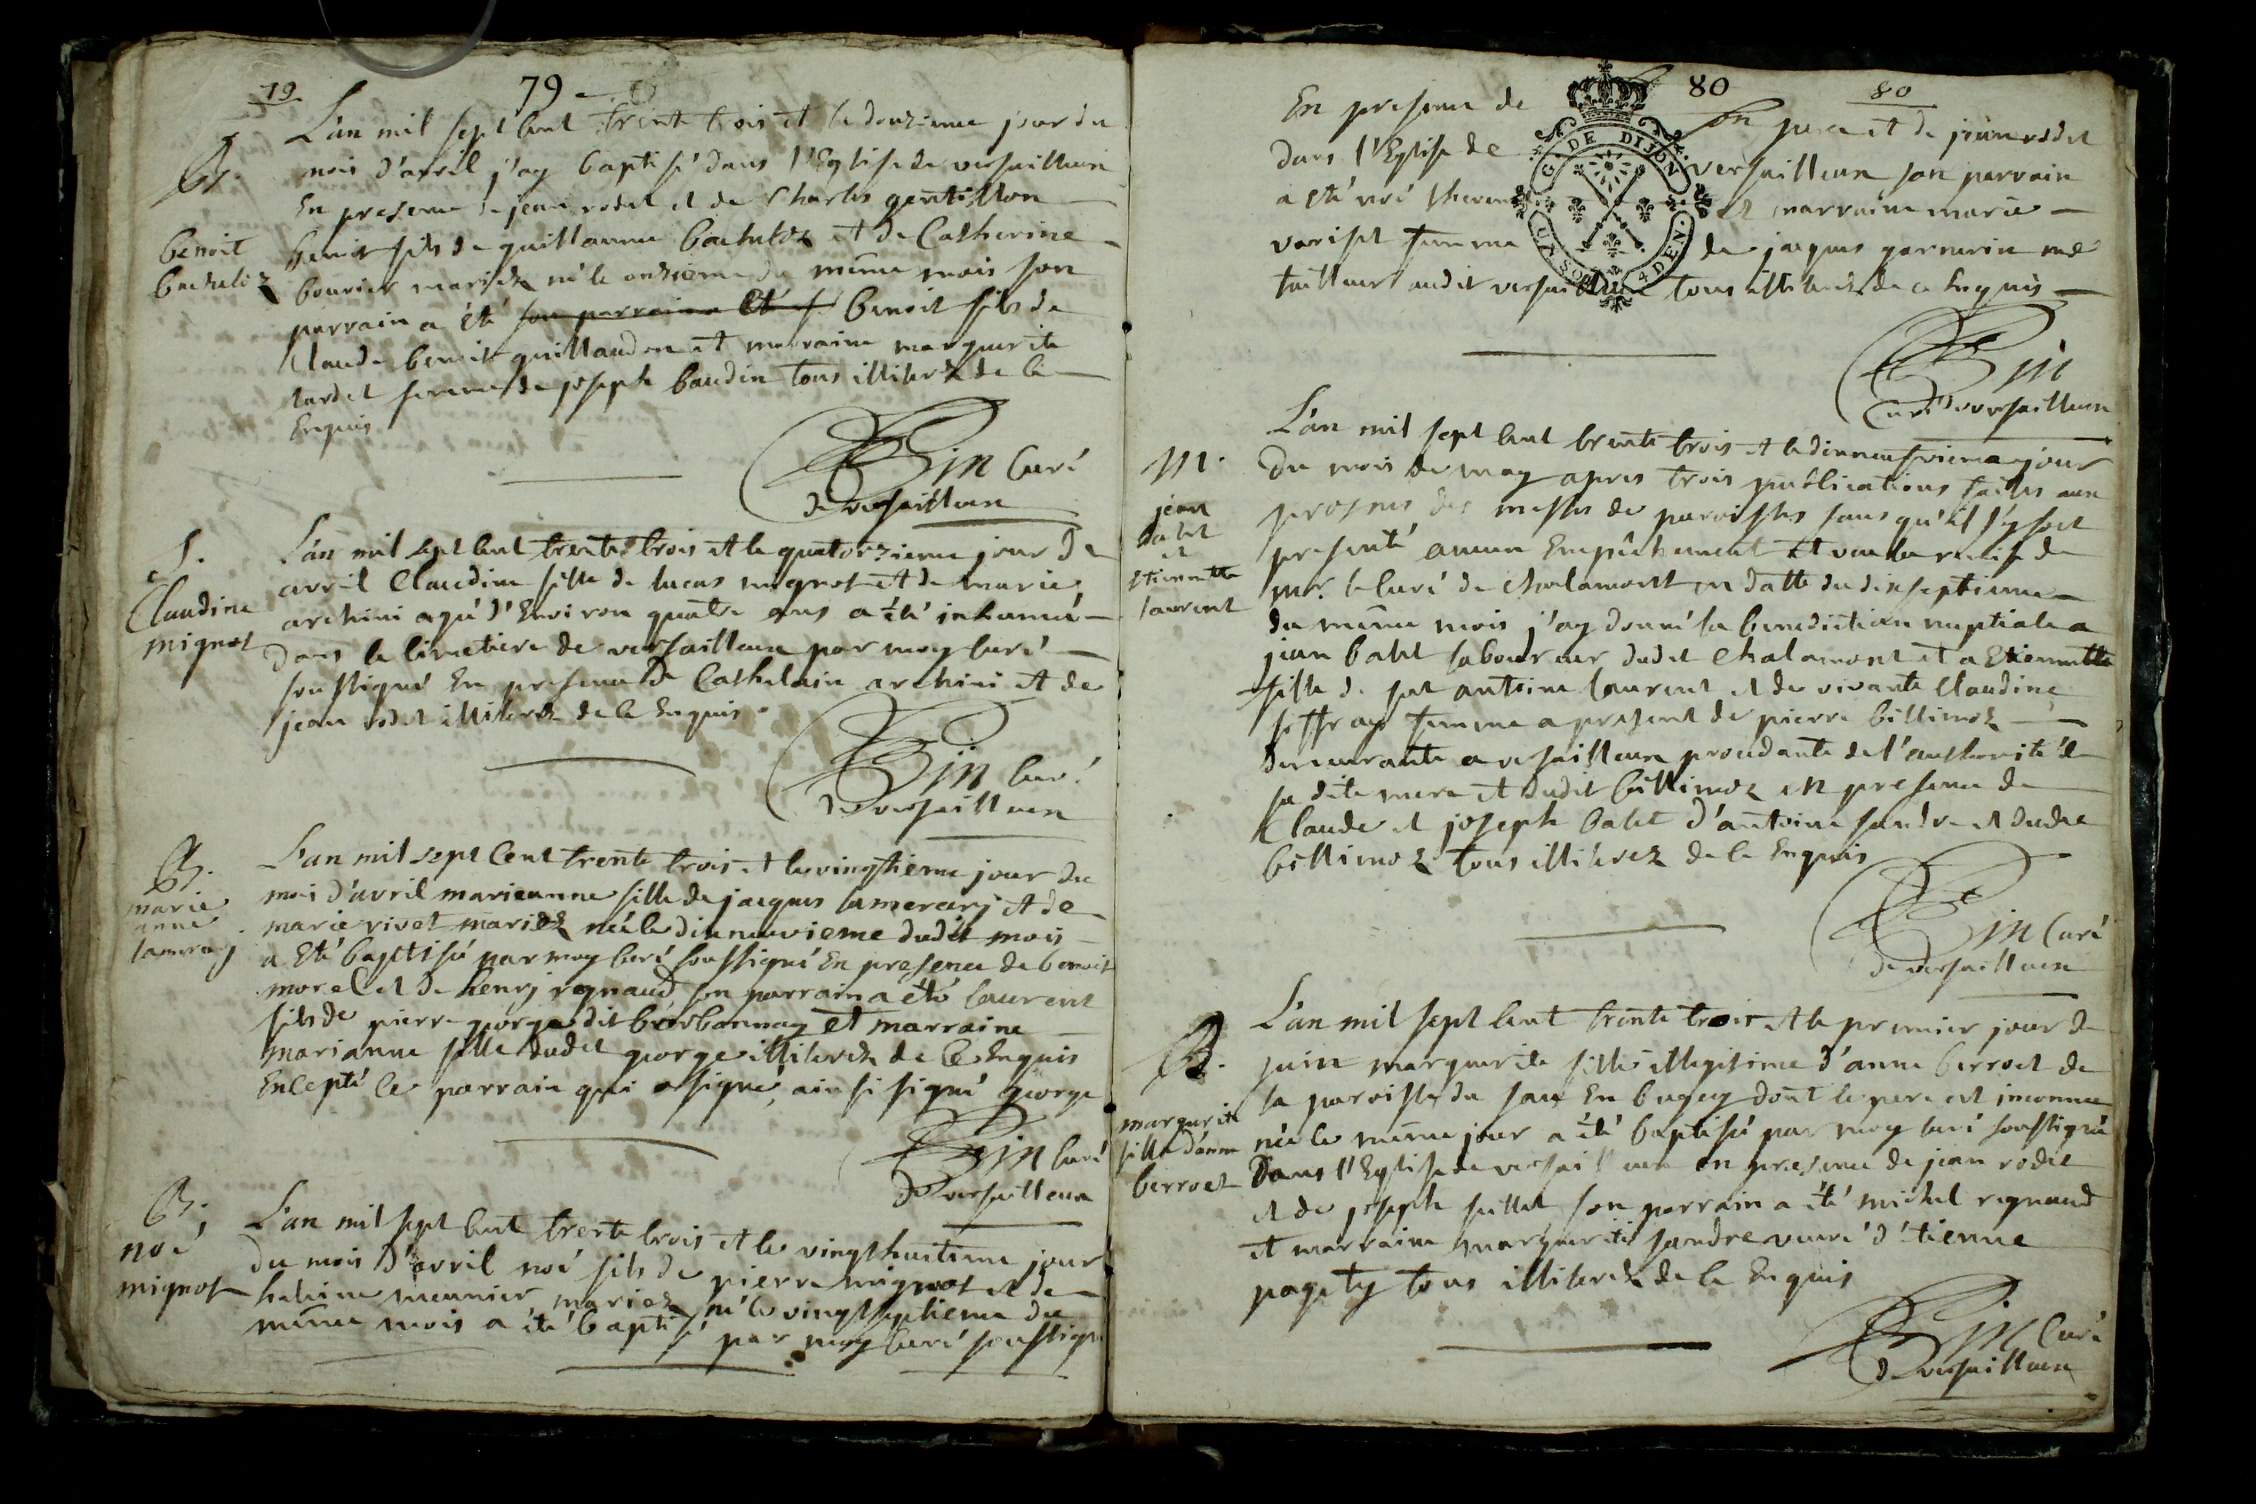 79
79
L'an mil sept cent trente trois et le douzieme jour du
B.
mois d'avril j'ay baptisé dans l'Eglise de versailleux
En presence de jean rodet et de Charles gentillon
benoit
bachelez
benoit fils de guillaume bachelez et de Catherine
bouvier mariez né le onzieme du même mois son
parrain a été son parrain a Eté f benoit fils de
Claude benoit guillaudon et marraine marguerite
tardet femme de joseph baudin tous illiterez de ce
Enquis
Bin Curé
de versailleux
S.
Claudine
mignot
L'an mil sept cent trente trois et le quatorzieme jour de
avril Claudine fille de lucas mignot et de marie
archini agé d'Environ quatre ans a été inhumé
dans le Cimetiere de versailleux par moy curé
soussigné En presence de Cathelain archini et de
jean rodet illiterez de ce Enquis
Bin Curé
de versailleux
B.
marie
anne
lamercrj
L'an mil sept Cent trente trois et le vingtieme jour du
moi d'avril marieanne fille de jacques lamercrj et de
marie rivet mariez née le dixneuvieme dudit mois
a Eté baptisée par moy curé soussigné En presence de benoit
morel et de henrj regnaud son parrain a été laurent
fils de pierre george dit bourbonnay et marraine
marianne fille dudit george illiterez de ce Enquis
Excepté le parrain qui a signé, ainsi signé george
Bin Curé
de versailleux
B.
noé
mignot
L'an mil sept cent trente trois et le vingt huitieme jour
du mois d'avril noé fils de pierre mignot et de
helaine meunier mariez né le vingt septieme du
même mois a été baptisé par moy curé soussigné
80
80
En presence de son pere et de jean rodet
dans l'Eglise de versailleux son parrain
a été noé et marraine marie
femme de jacques garnerin me
tailleur audit versailleux tous illiterez de ce Enquis
GE DE DIJON
4 DEN.
Bin
Curé de versailleux
M.
jean
babet
et
Etiennette
laurent
L'an mil sept cent trente trois et le dixneufvieme jour
du mois de may apres trois publications faites aux
prosnes des messes de paroisses sans qu'il s'y soit
presenté aucun Empêchement et vu la remise de
mr. le Curé de Chalamont en datte du dixseptieme
du même mois j'ay donné la benediction nuptiale a
jean babet laboureur dudit Chalamont et a Etiennette
fille de feu antoine laurent et de vivante Claudine
joffray femme a present de pierre billimoz
demeurante a versailleux procedante de l'authorité de
sa dite mere et dudit billimoz en presence de
Claude et joseph babet d'antoine sandre et dudit
billimoz tous illiterez de ce Enquis
Bin Curé
de versailleux
B.
marguerite
fille d'anne
berroet
L'an mil sept cent trente trois et le premier jour de
juin marguerite fille illegitime d'anne berroet de
la paroisse du sau En bugey dont le pere est inconnu
née le même jour a été baptisée par moy curé soussigné
Dans l'Eglise de versailleux en presence de jean rodet
et de joseph fillet son parrain a été michel regnaud
et marraine marguerite sandre veuve d'Etienne
pagety tous illiterez de ce Enquis
Bin Curé
de versailleux